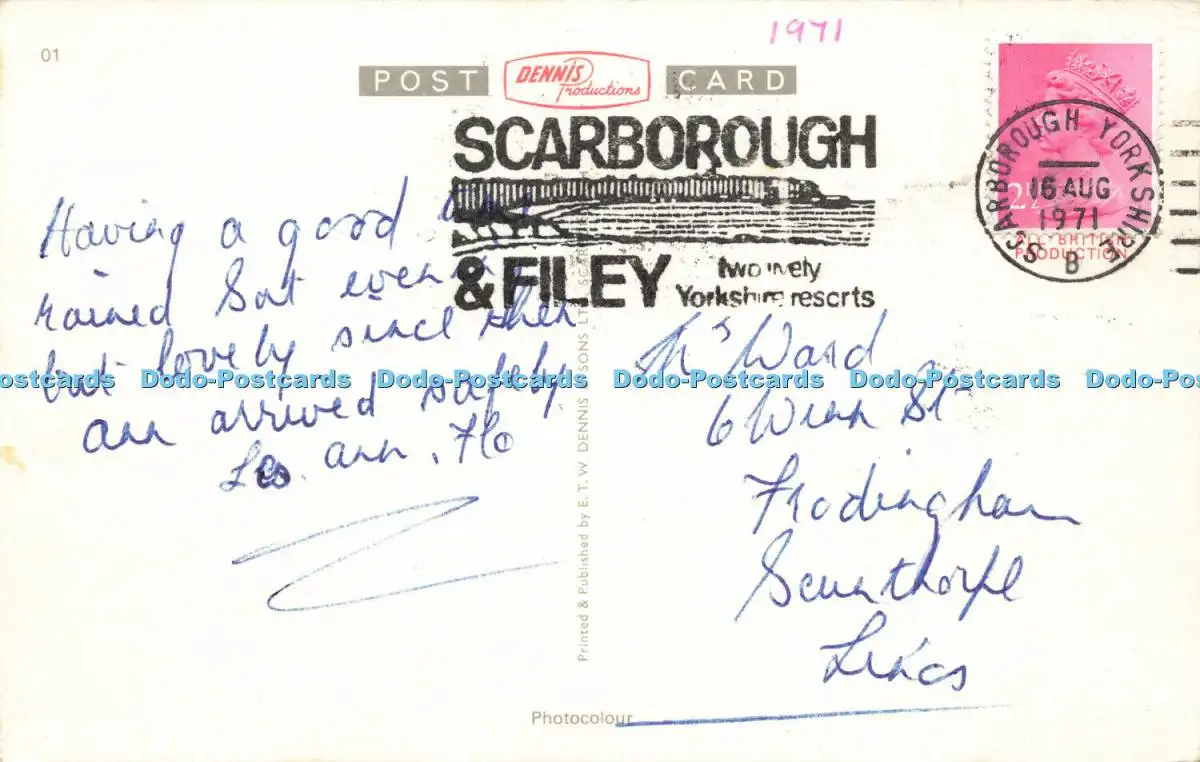 1971
01
POST DENNIS Productions CARD
SCARBOROUGH
& FILEY
two lovely
Yorkshire resorts
SCARBOROUGH YORKSHIRE
16 AUG
1971
B
PRODUCTION
Having a good
rained Sat
but lovely since then
ann arrived safely
Les. ann. Flo
Mrs Ward
6 Winn St
Frodingham
Scunthorpe
Lincs
Printed & Published by E. T. W. DENNIS & SONS LTD., SCAR
Photocolour
Dodo-Postcards Dodo-Postcards Dodo-Postcards Dodo-Postcards Dodo-Postcards Dodo-Postcards